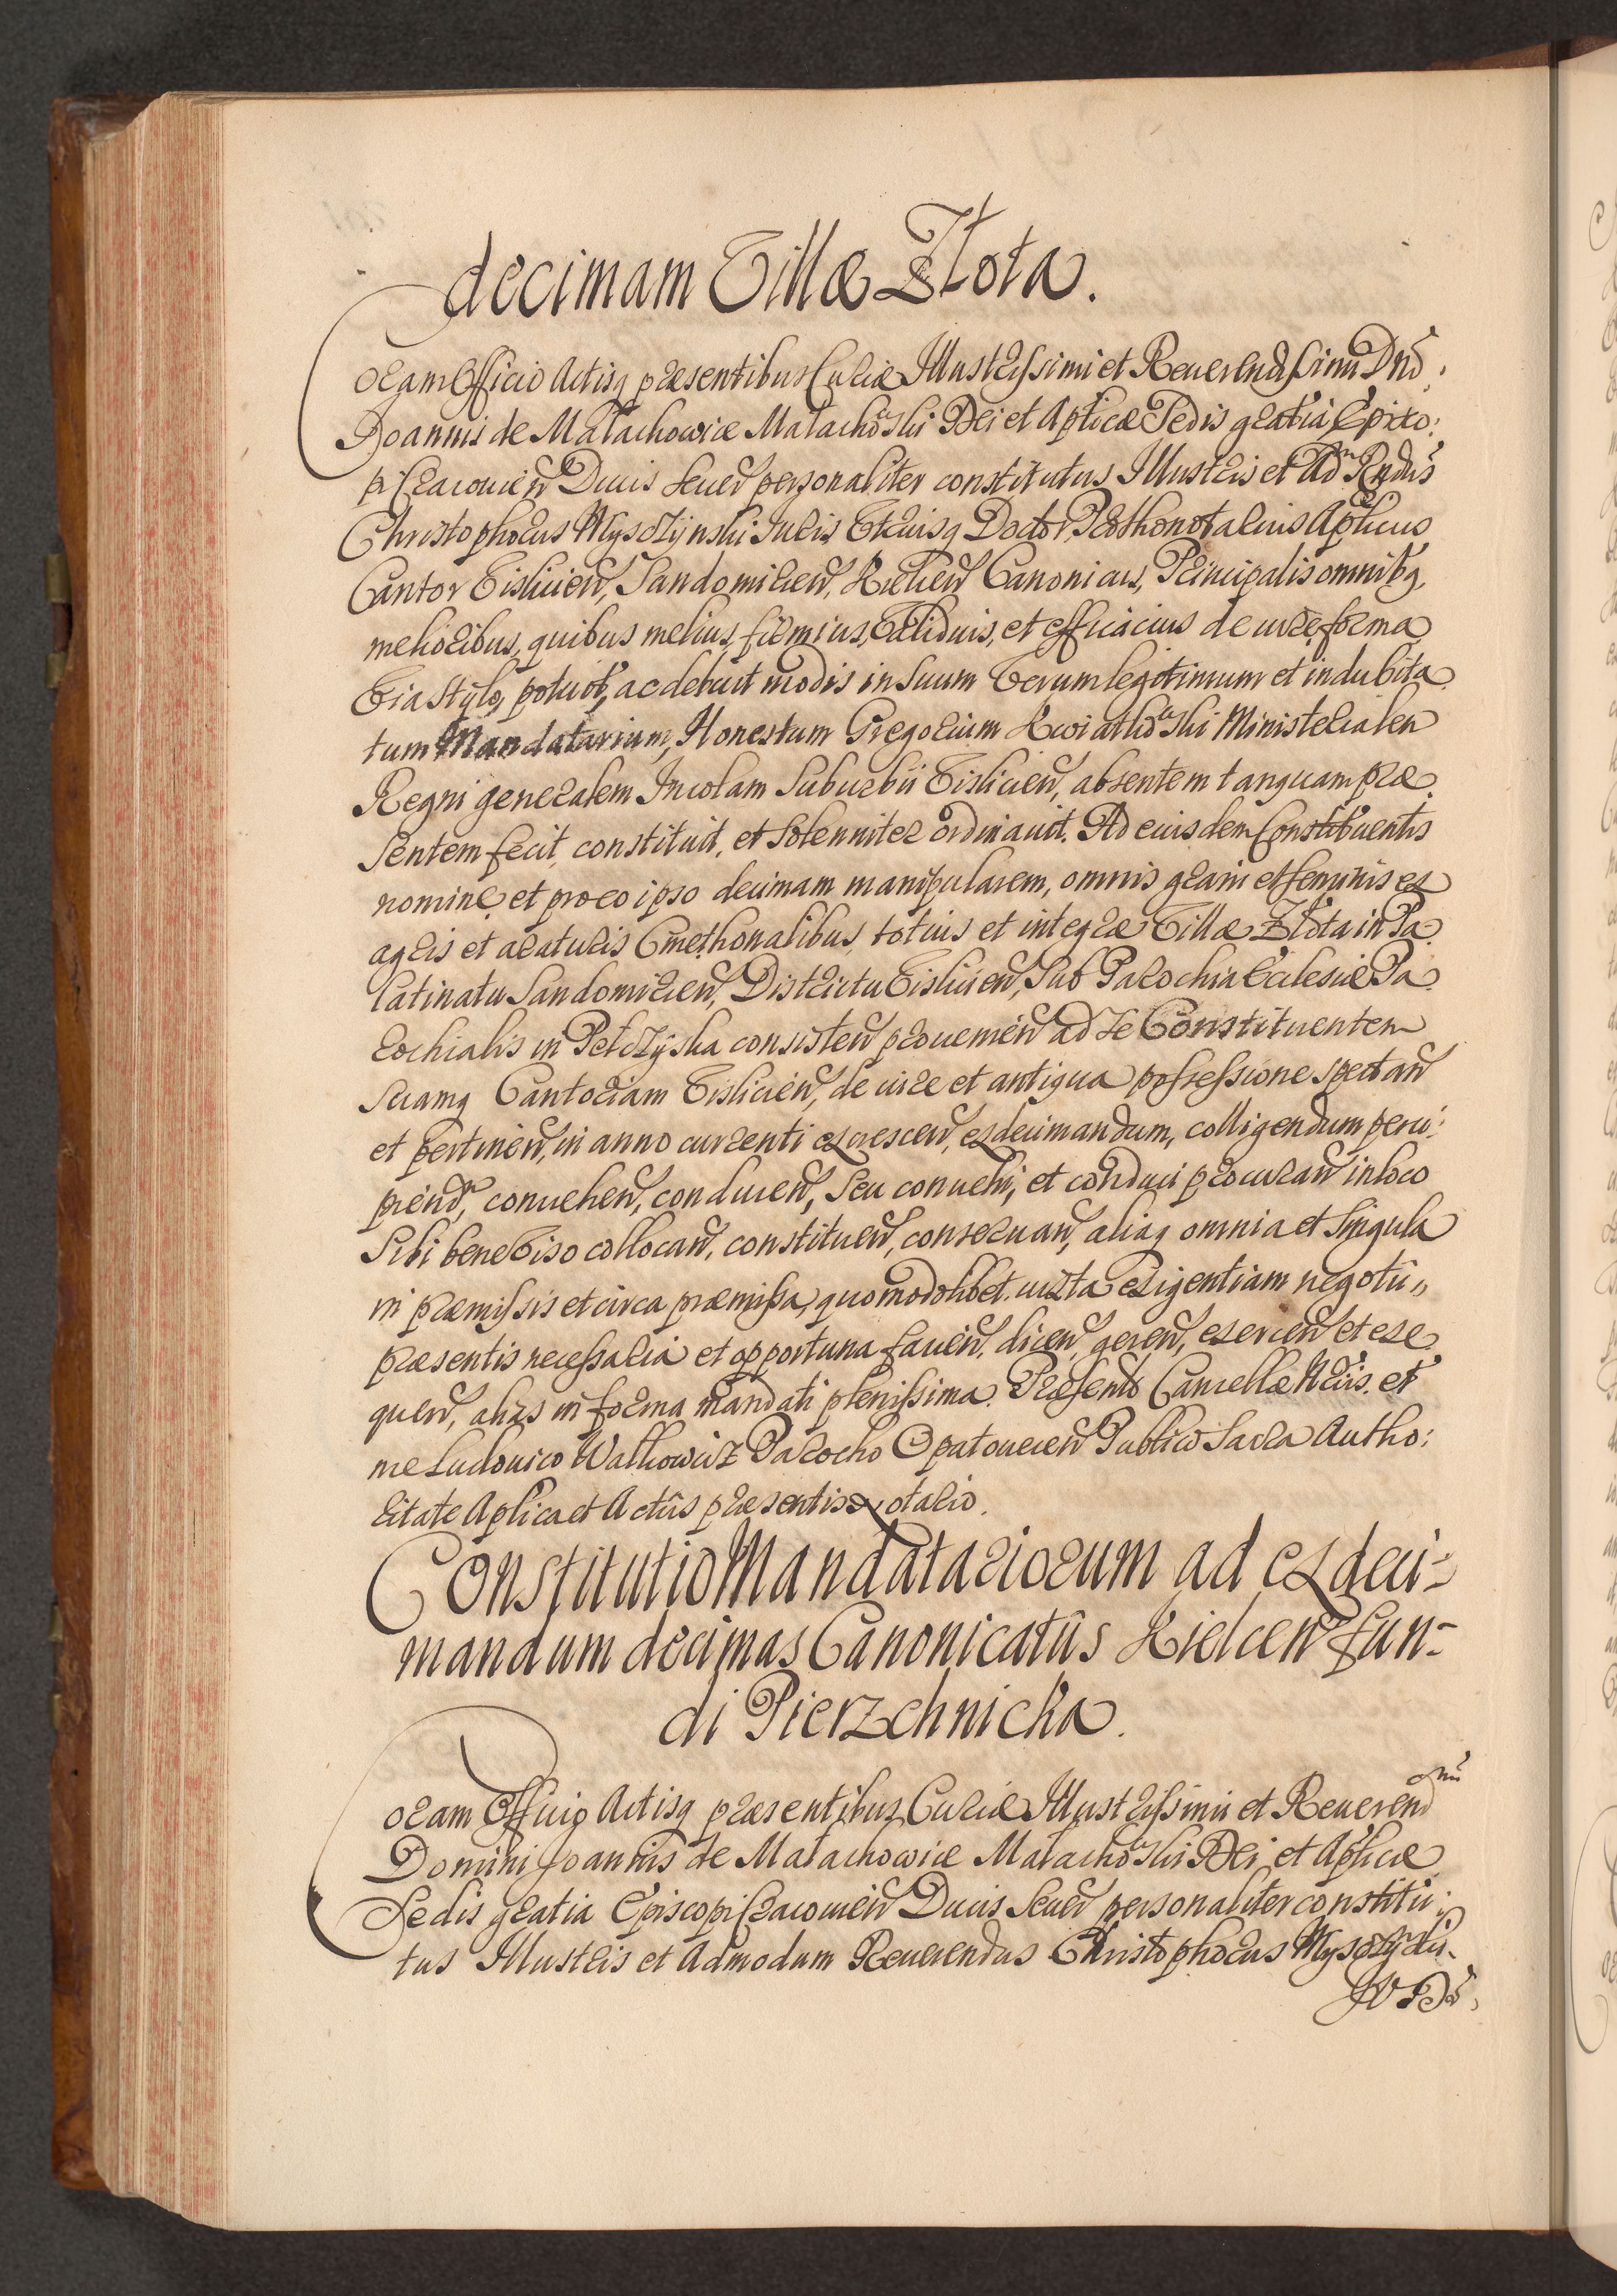 decimam Villæ Złota.
Coram Officio Actisq præsentibus Curiæ Illustrissimi et Reuerendissimi Dnī
Joannis de Małachowice Małachowski Dei et Aplicæ Sedis gratia Episco:
pi Cracouień Ducis Seuer personaliter constitutus Illustris et Adm Rndus
Christophorus Mysczynski Iuris Vtriusq Doctor, Prothonotarius Aplicus
Cantor Vislicien, Sandomirien, Kielcen Canonicus, Principalis omnibq,
melioribus, quibus melius, firmius, Validius, et efficacius de iure, forma
Via stylo, potuit, ac debuit modis in suum Verum legitimum et indubita
tum Mandatarium, Honestum Gregorium Kwiatkowski Ministerialem
Regni generalem Incolam Suburbii Vislicien, absentem tanquam præ
sentem fecit, constituit, et solenniter ordinauit. Ad eiusdem Constituentis
nomine, et pro eo ipso decimam manipularem, omnis grani et seminis ex
agris et araturis Cmethonalibus, totius et integræ Villæ Złota in Pa:
latinatu Sandomirien, Districtu Vislicien, Sub Parochia Ecclesiæ Pa
rochialis in Pełczyska consisten prouenien ad se Constituentem
suamq Cantoriam Vislicien, de iure et antiqua possessione spectan
et pertinen, in anno currenti excrescen, exdecimandum, colligendum perci:
piend, conuehen, conducen, seu conuehi, et conduci procuran in loco
Sibi bene Viso collocan, constituen, conseruan, aliaq omnia et singula
in præmissis et circa præmissa, quomodolibet. iuxta exigentiam negotii,,
præsentis necessaria et opportuna facien, dicen, geren, exercen et exe
quen, alias in forma mandati plenissima. Præsente Cancellæ Nrio. et
me Ludouico Walkowicz Parocho Opatouecen Publico Sacra Autho:
ritate Aplica et Actûs præsentis Notario.
Constitutio Mandatariorum ad exdeci-
mandum decimas Canonicatûs Kielcen fun-
di Pierzchnicka.
Coram Officio Actisq præsentibus Curiæ Illustrissimi et Reuerend ssmi
Domini Joannis de Małachowice Małachowski Dei et Aplicæ
Sedis gratia Episcopi Cracouien Ducis Seuer personaliter constitu:
tus Illustris et Admodum Reuerendus Christophorus Mysczyński
JVDr,